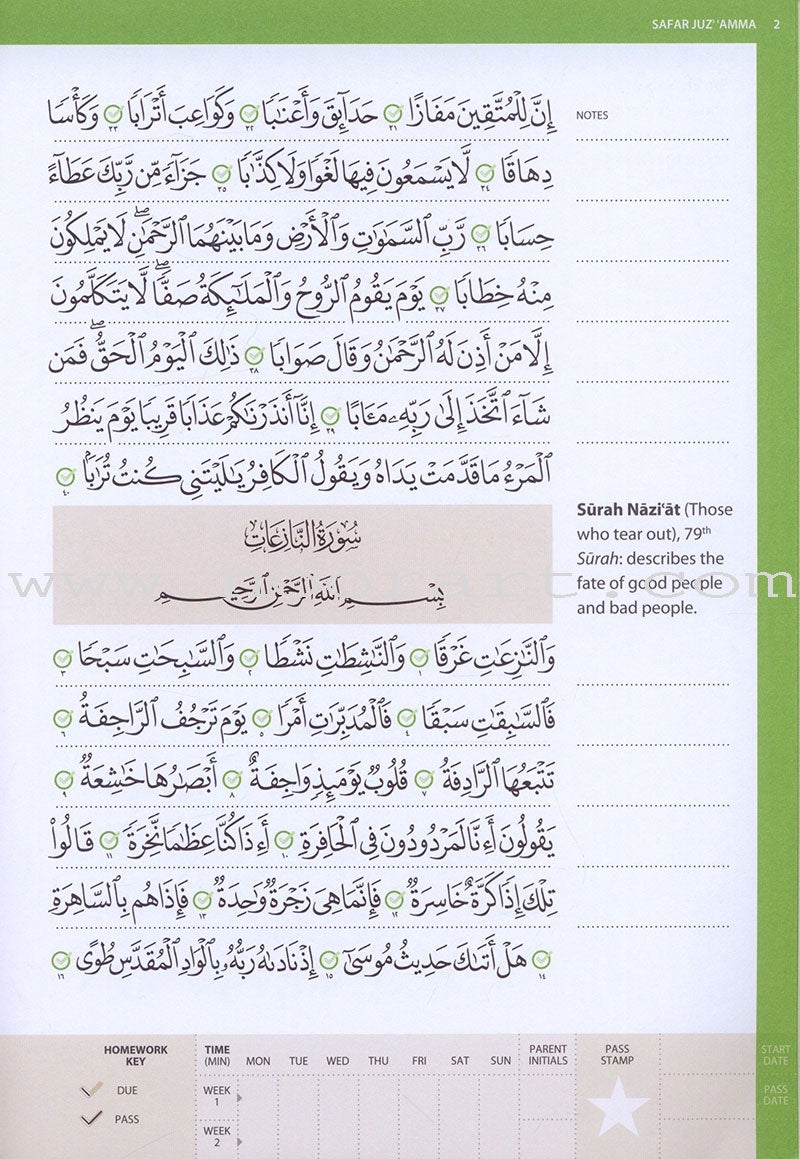 SAFAR JUZ' 'AMMA 2
إِنَّ لِلْمُتَّقِينَ مَفَازًا ٣١ حَدَآئِقَ وَأَعْنَٰبًا ٣٢ وَكَوَاعِبَ أَتْرَابًا ٣٣ وَكَأْسًا
دِهَاقًا ٣٤ لَّا يَسْمَعُونَ فِيهَا لَغْوًا وَلَا كِذَّٰبًا ٣٥ جَزَآءً مِّن رَّبِّكَ عَطَآءً
حِسَابًا ٣٦ رَّبِّ ٱلسَّمَٰوَٰتِ وَٱلْأَرْضِ وَمَا بَيْنَهُمَا ٱلرَّحْمَٰنِۖ لَا يَمْلِكُونَ
مِنْهُ خِطَابًا ٣٧ يَوْمَ يَقُومُ ٱلرُّوحُ وَٱلْمَلَٰٓئِكَةُ صَفًّاۖ لَّا يَتَكَلَّمُونَ
إِلَّا مَنْ أَذِنَ لَهُ ٱلرَّحْمَٰنُ وَقَالَ صَوَابًا ٣٨ ذَٰلِكَ ٱلْيَوْمُ ٱلْحَقُّۖ فَمَن
شَآءَ ٱتَّخَذَ إِلَىٰ رَبِّهِۦ مَـَٔابًا ٣٩ إِنَّآ أَنذَرْنَٰكُمْ عَذَابًا قَرِيبًا يَوْمَ يَنظُرُ
ٱلْمَرْءُ مَا قَدَّمَتْ يَدَاهُ وَيَقُولُ ٱلْكَافِرُ يَٰلَيْتَنِى كُنتُ تُرَٰبًۢا ٤٠
سُورَةُ النَّازِعَاتِ
بِسْمِ ٱللَّهِ ٱلرَّحْمَٰنِ ٱلرَّحِيمِ
وَٱلنَّٰزِعَٰتِ غَرْقًا ١ وَٱلنَّٰشِطَٰتِ نَشْطًا ٢ وَٱلسَّٰبِحَٰتِ سَبْحًا ٣
فَٱلسَّٰبِقَٰتِ سَبْقًا ٤ فَٱلْمُدَبِّرَٰتِ أَمْرًا ٥ يَوْمَ تَرْجُفُ ٱلرَّاجِفَةُ ٦
تَتْبَعُهَا ٱلرَّادِفَةُ ٧ قُلُوبٌ يَوْمَئِذٍ وَاجِفَةٌ ٨ أَبْصَٰرُهَا خَٰشِعَةٌ ٩
يَقُولُونَ أَءِنَّا لَمَرْدُودُونَ فِى ٱلْحَافِرَةِ ١٠ أَءِذَا كُنَّا عِظَٰمًا نَّخِرَةً ١١ قَالُوا۟
تِلْكَ إِذًا كَرَّةٌ خَاسِرَةٌ ١٢ فَإِنَّمَا هِىَ زَجْرَةٌ وَٰحِدَةٌ ١٣ فَإِذَا هُم بِٱلسَّاهِرَةِ
١٤ هَلْ أَتَىٰكَ حَدِيثُ مُوسَىٰٓ ١٥ إِذْ نَادَىٰهُ رَبُّهُۥ بِٱلْوَادِ ٱلْمُقَدَّسِ طُوًى ١٦
NOTES
Sūrah Nāzi‘āt (Those
who tear out), 79th
Sūrah: describes the
fate of good people
and bad people.
HOMEWORK
KEY
DUE
PASS
TIME
(MIN) MON TUE WED THU FRI SAT SUN
WEEK
1
WEEK
2
PARENT
INITIALS
PASS
STAMP
START
DATE
PASS
DATE